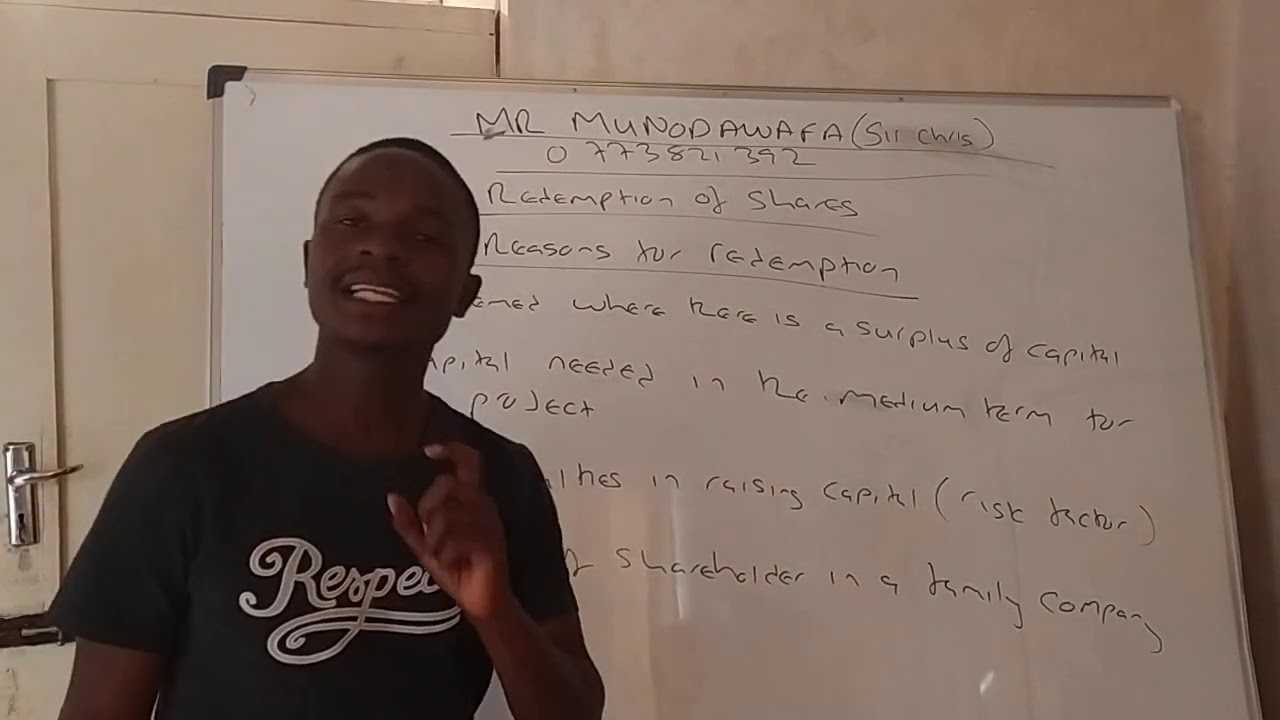 MR MUNODAWAFA (Sir Chris)
0773821392
Redemption of Shares
Reasons for redemption
emed where there is a surplus of capital
apital needed in the medium term for
project
lties in raising capital (risk factor)
shareholder in a family company
Respec